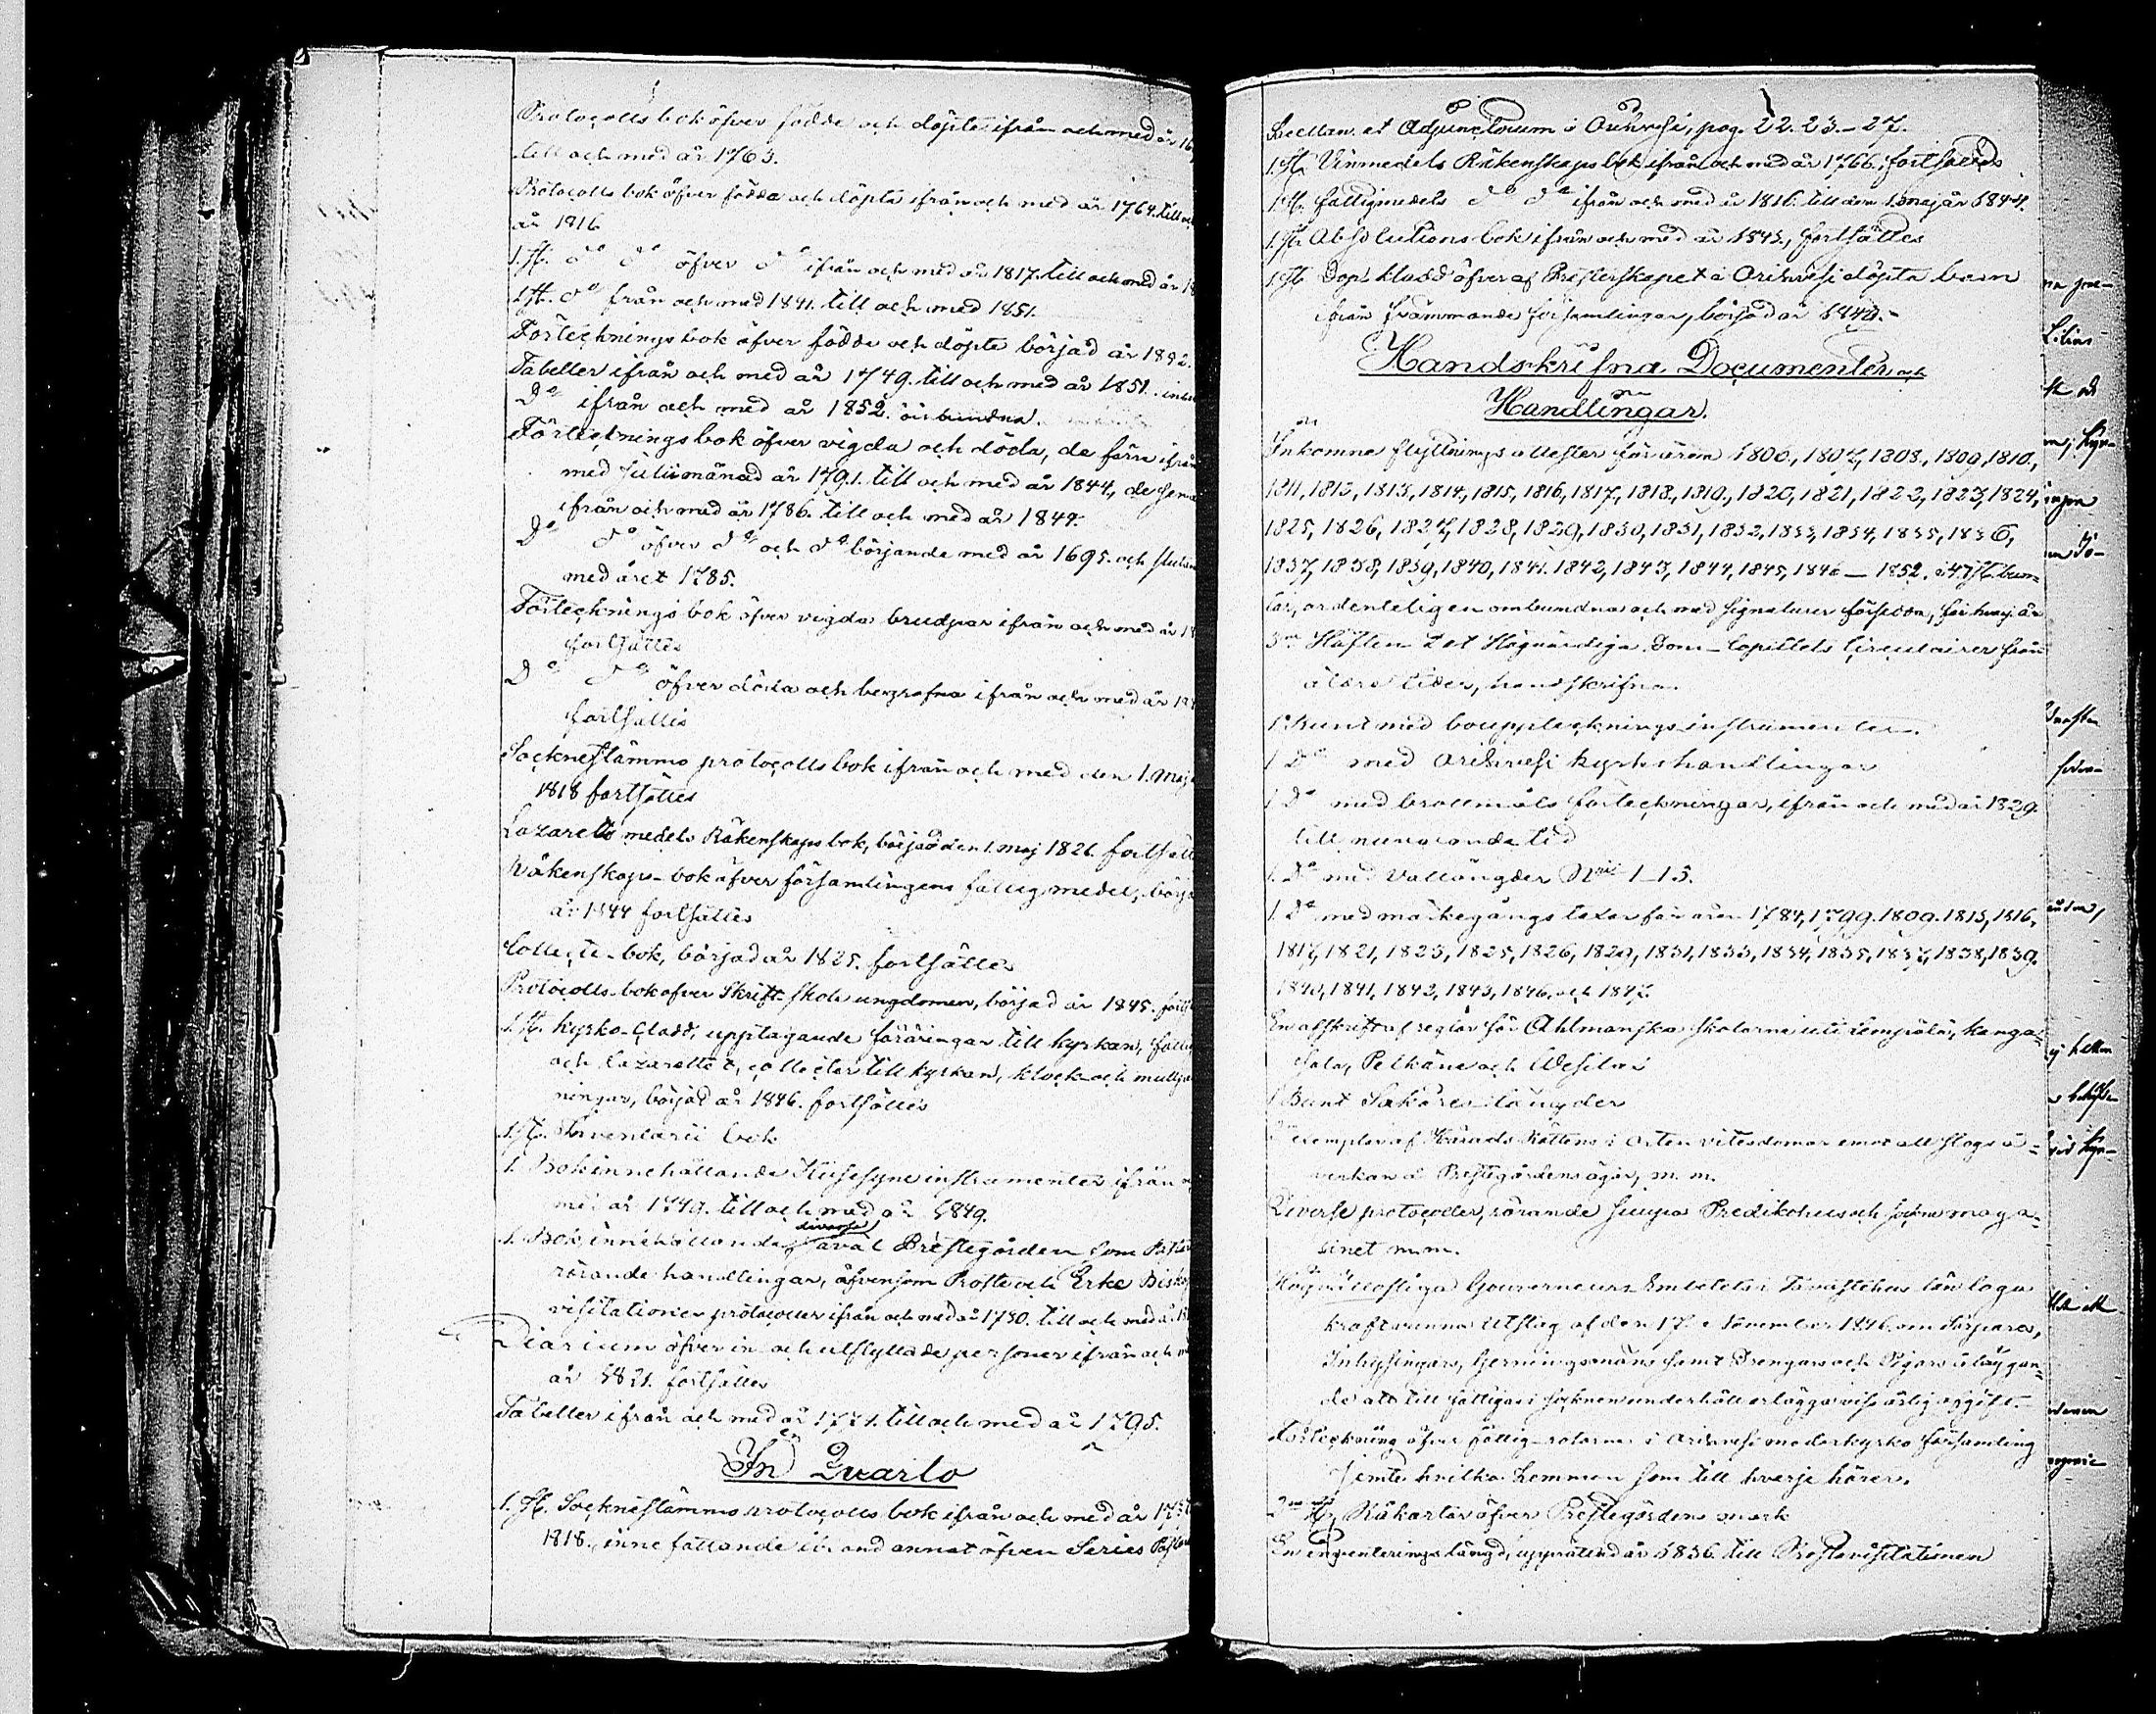 Protocolls bok öfver födde och döpte ifrån och med år 16
till och med år 1763.
Protocolls bok öfver födda och döpta ifrån och med år 1764. till och
år 1816
1. St. do do öfver do ifrån och med år 1817. till och med år 18
1. St. do från och med 1841. till och med 1851.
Förteckningsbok öfver födda och döpta börjad år 1892.
Tabeller ifrån och med år 1749. till och med år 1851.
Do ifrån och med år 1852. oinbundna.
Förteckningsbok öfver vigda och döda, de förra ifrån
med Julii månad år 1791. till och med år 1844, de sena
ifrån och med år 1786. till och med år 1844.
Do do öfver do och do började med år 1695. och slutan
med året 1785.
Förtecknings bok öfver vigda brudpar ifrån och med år 18
fortsättes
Do do öfver döda och begrafna ifrån och med år 18
fortsättes
Socknestämmo protocolls bok ifrån och med den 1. Maj
1818 fortsättes
Lazaretts medels Räkenskaps bok, börjad den 1. maj 1826. fortsätt
Räkenskaps-bok öfver församlingens fattigmedel, börj
år 1844 fortsättes
Collecte-bok, börjad år 1825. fortsättes
Protocolls-bok öfver Skrift-skole ungdomen, börjad år 1845. forts
1. St. Kyrko-Cladd, upptagande föräringar till kyrkan, fatti
och Lazarettet, collecter till kyrkan, klock- och mull
ningar, börjad år 1846. fortsättes
1. St. Inventarii bok
1. Bok innehållande Husesyns instrumenter ifrån
med år 1749. till och med år 1849.
diverse
1. Bok innehållande såväl Prestegården som
rörande handlingar, äfvensom Prosts och Erke Bisko
visitationes protocoller ifrån och med år 1730. till och med år 18
Diarium öfver in- och utflyttade personer ifrån och m
år 1821. fortsättes
Tabeller ifrån och med år 1771. till och med år 1795.
In Quarto
1. St. Socknestämmo protocolls bok ifrån och med år 17
1818., innefattande ibland annat öfven Series Pasto
Sacellan. et Adjunctorum i Orihvesi, pag. 22. 23. - 27.
1. St. Vinmedels Räkenskaps bok ifrån och med år 1766. fortsättes
1. St. Fattigmedels do do ifrån och med år 1816. till den 1. maj år 1844.
1. St. Absolutions bok ifrån och med år 1843., fortsättes
1. St. Dop kladd öfver af Presterskapet i Orihvesi döpta barn
ifrån främmande församlingar, börjad år 1840.-
Handskrifna Documenter och
Handlingar.
Inkomne flyttnings attester för åren 1806., 1807, 1808., 1809, 1810.,
1811, 1812, 1813, 1814, 1815, 1816, 1817, 1818, 1819, 1820, 1821, 1822, 1823, 1824,
1825, 1826, 1827, 1828, 1829, 1830, 1831, 1832, 1833, 1834, 1835, 1836,
1837, 1838, 1839, 1840, 1841. 1842, 1843, 1844, 1845, 1846 — 1852. i 47 St. bun-
tar, ordenteligen ombundna och med signaturer försedda, för hvarje år
3ne Häften det Högvördiga Dom-Capittels Circulairer från
äldre tider, handskrifna.
1. Bunt med bouppteckningsinstrumenter.
1. Do med Orihvesi kyrko handlingar
1. Do med brottmåls förteckningar, ifrån och med år 1829.
till nuvarande tid
1. Do med Vallängder Nris 1-13.
1. Do med markegångs taxor för åren 1784, 1799. 1809. 1815, 1816,
1817, 1821, 1823, 1825, 1826, 1829, 1831, 1833, 1834, 1835, 1837, 1838, 1839.
1840, 1841, 1842, 1843, 1846, och 1847.
En afskrift af reglor för Ahlmanska skolorna uti Lempälä, Kanga-
sala, Pelkäne och Wesilax
1 Bunt Saköres längder
exemplar af Härads Rättens i Orten vitesdomar emot all slags å-
verkan å Prestegårdens ägor, m. m.
Diverse protocoller, rörande Predikohus och Sockne maga-
sinet m. m.
Gouverneurs Embetets i Tavastehus län laga
kraftvunna Utslag af den 17. November 1846. om
Inhysingars, Gerningsmäns samt Drengars och Pigors åläggan-
de att till fattigas i socknen underhåll erlägga viss årlig afgift.-
Förteckning öfver fattig-rotarne i Orihvesi moderkyrko församling
jemte hvilka hemman som till hvarje hörer.
2ne St. Råkartor öfver Prestegårdens mark
En inventerings längd, upprättad år 1836. till Prostevisitationen